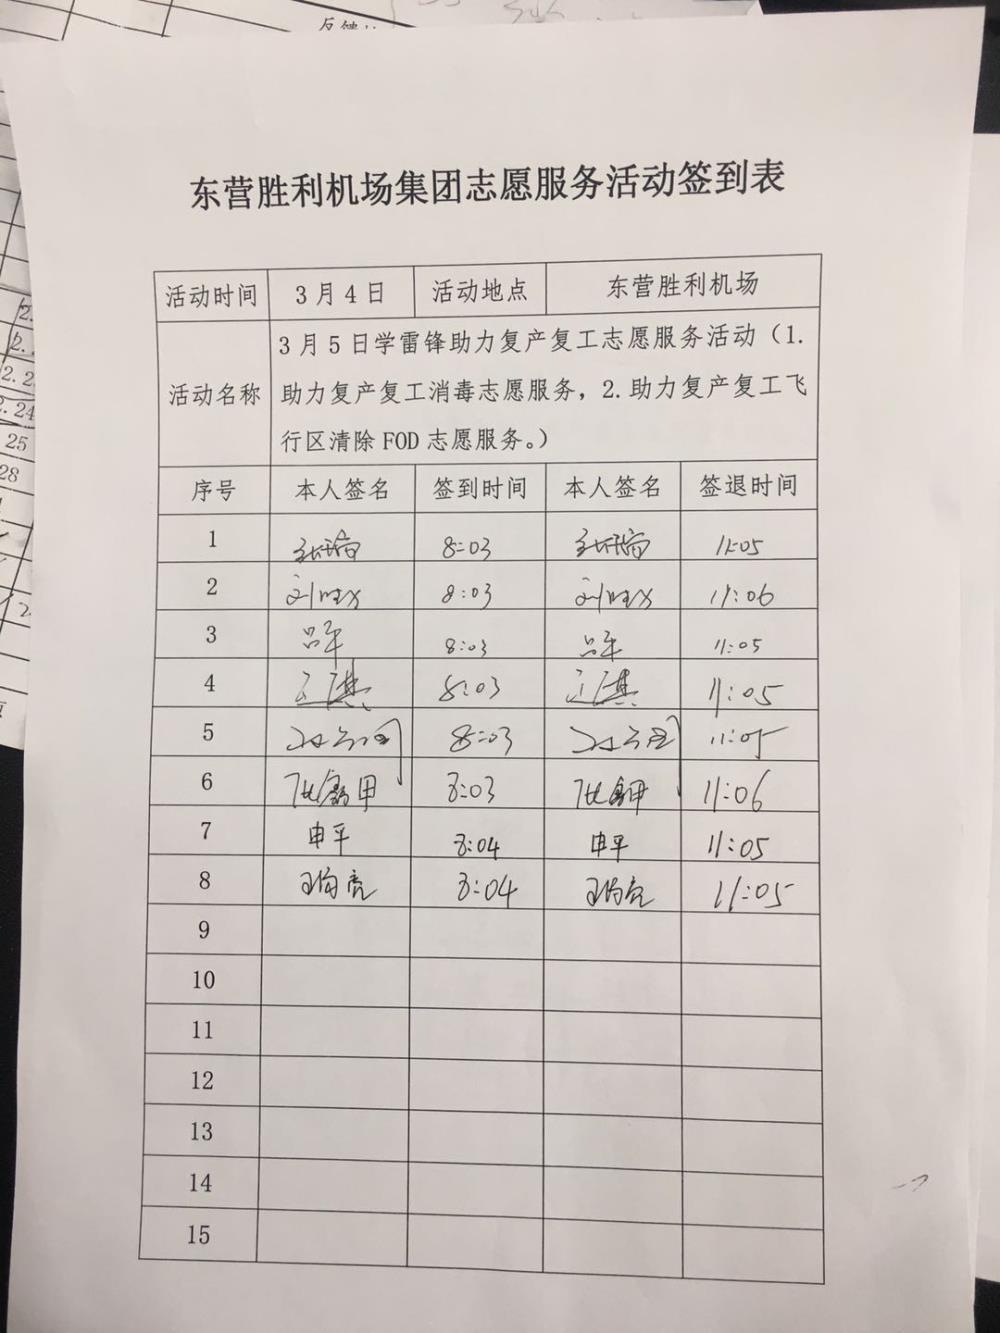 东营胜利机场集团志愿服务活动签到表
活动时间 3月4日 活动地点 东营胜利机场
活动名称
3月5日学雷锋助力复产复工志愿服务活动（1.
助力复产复工消毒志愿服务，2.助力复产复工飞
行区清除FOD志愿服务。）
序号 本人签名 签到时间 本人签名 签退时间
1 8:03 11:05
2 8:03 11:06
3 吕军 8:03 吕军 11:05
4 8:03 11:05
5 8:03 11:05
6 8:03 11:06
7 申平 8:04 申平 11:05
8 8:04 11:05
9
10
11
12
13
14
15
2.24
25
28